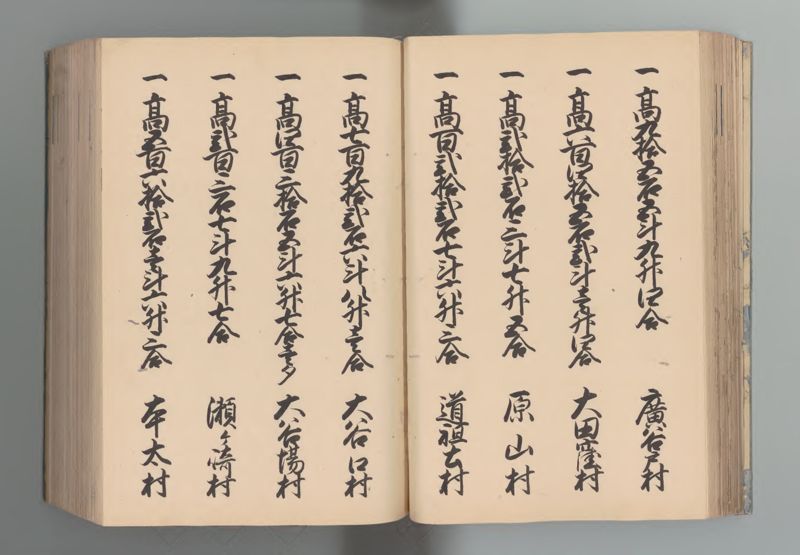 一 高九拾五石五斗九升四合 廣谷戸村
一 高六百四拾五石弐斗壱升四合 大田窪村
一 高弐拾弐石三斗七升五合 原山村
一 高百弐拾弐石七斗六升三合 道祖土村
一 高七百九拾弐石六斗八升壱合 大谷口村
一 高四百三拾石五斗六升七合壱夕 大谷場村
一 高弐百三石七斗九升七合 瀬ケ崎村
一 高五百六拾弐石壱斗六升三合 本太村